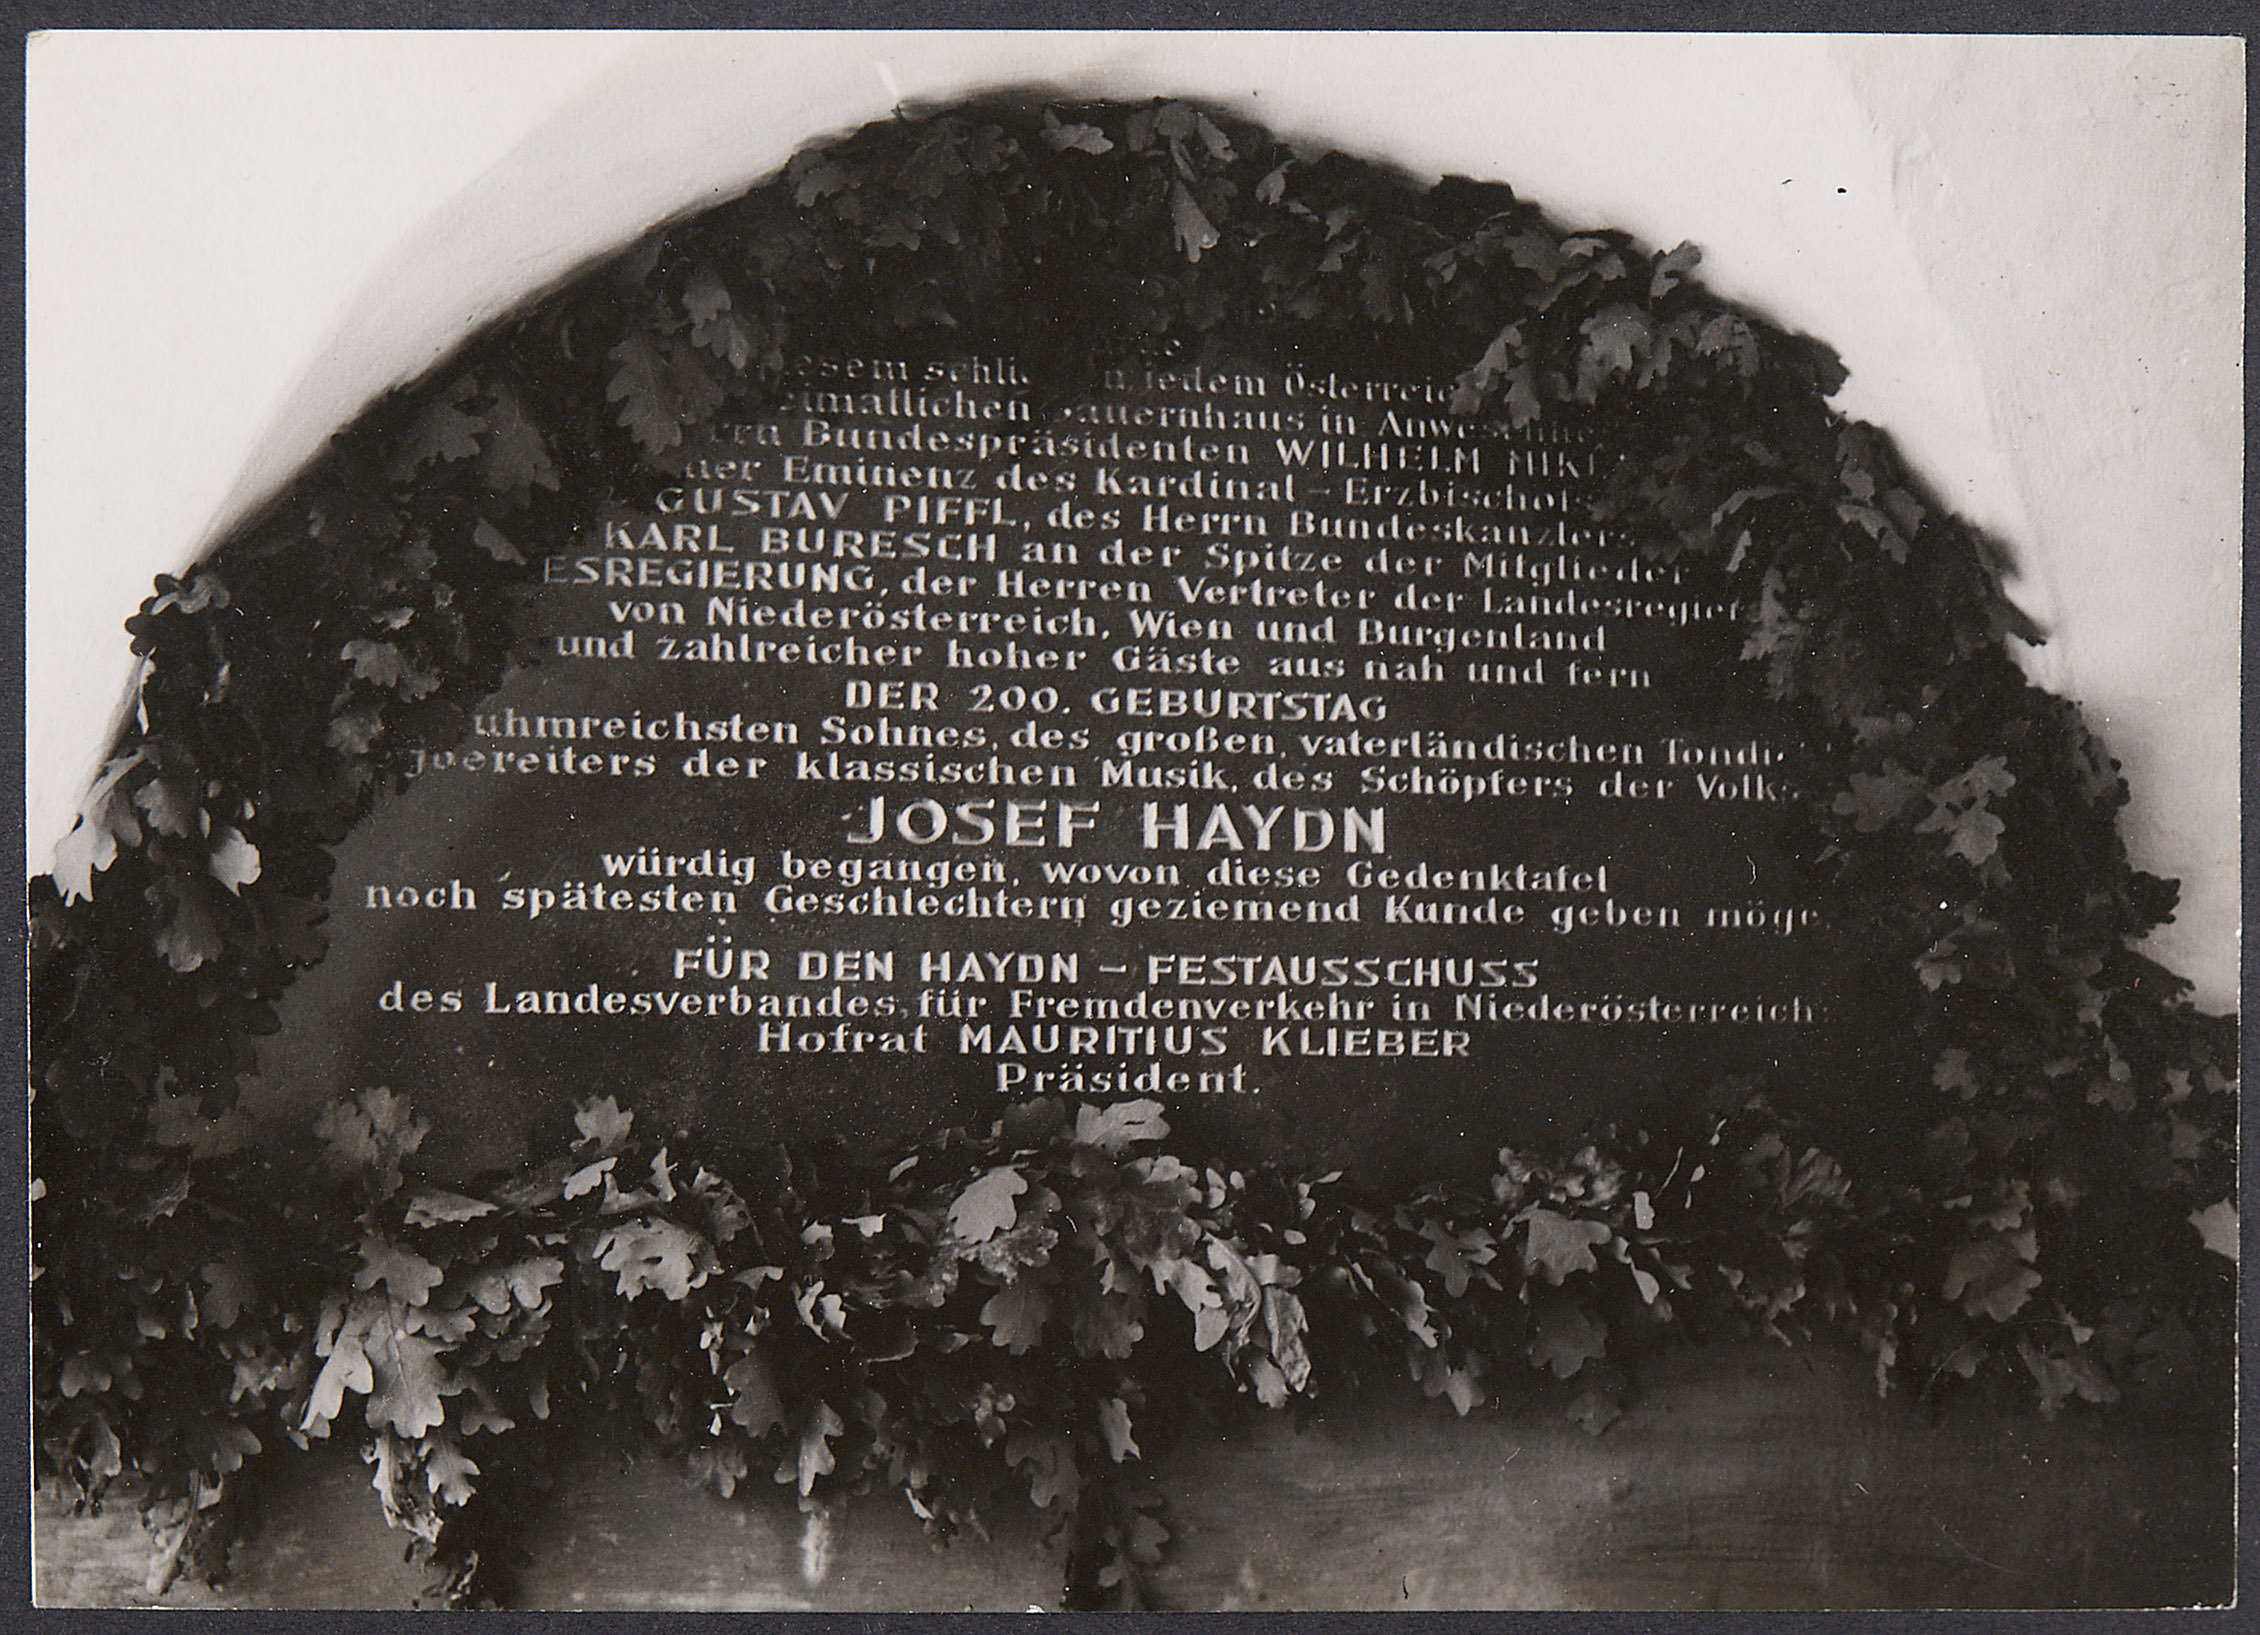 jedem
in
Bundespräsidenten WILHELM
Eminenz des Kardinal – Erzbischofs
GUSTAV PIFFL, des Herrn Bundeskanzlers
KARL BURESCH an der Spitze der Mitglieder
ESREGIERUNG, der Herren Vertreter der Landesregier
von Niederösterreich, Wien und Burgenland
und zahlreicher hoher Gäste aus nah und fern
DER 200. GEBURTSTAG
uhmreichsten Sohnes, des großen, vaterländischen Tondi
der klassischen Musik, des Schöpfers der Volks
JOSEF HAYDN
würdig begangen, wovon diese Gedenktafel
noch spätesten Geschlechtern geziemend Kunde geben möge.
FÜR DEN HAYDN – FESTAUSSCHUSS
des Landesverbandes für Fremdenverkehr in Niederösterreich:
Hofrat MAURITIUS KLIEBER
Präsident.